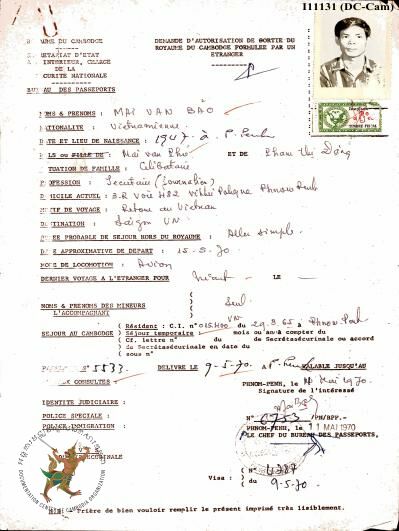 I11131 (DC-Cam)
DEMANDE D'AUTORISATION DE SORTIE DU
ROYAUME DU CAMBODGE FORMULEE PAR UN
ETRANGER
ROYAUME DU CAMBODGE
SECRETARIAT D'ETAT
INTERIEUR, CHARGE
DE LA
SECURITE NATIONALE
BUREAU DES PASSEPORTS
NOMS & PRENOMS : MAI VAN BAO
NATIONALITE : Vietnamienne
DATE ET LIEU DE NAISSANCE : 1947 à P. Penh
FILS ou FILLE DE : Mai van Phu ET DE Pham thi Dong
SITUATION DE FAMILLE : Célibataire
PROFESSION : Secrétaire (Journalier)
DOMICILE ACTUEL : 3.R Voie H82 Phnom Penh
MOTIF DE VOYAGE : Retour au Vietnam
DESTINATION : Saigon VN
DUREE PROBABLE DE SEJOUR HORS DU ROYAUME : Aller simple
DATE APPROXIMATIVE DE DEPART : 15.5.70
MODE DE LOCOMOTION : Avion
DERNIER VOYAGE A L'ETRANGER POUR Néant LE —
NOMS & PRENOMS DES MINEURS
L'ACCOMPAGNANT Seul
( Résident : C.I. n° VN du 29.3.65 à Phnom Penh
SEJOUR AU CAMBODGE ( Séjour temporaire mois ou an/à compter du
( Cf. lettre n° du de Secrétasécuriale ou accord
( de Secrétasécuriale en date du
( sous n°
N° 5533 DELIVRE LE 9-5-70 A P. Penh VALABLE JUSQU'AU
CONSULTES PHNOM-PENH, le Mai 1970
Signature de l'intéressé
IDENTITE JUDICIAIRE :
POLICE SPECIALE : N° 6753 /PN/BPP.-
POLICE IMMIGRATION : PHNOM-PENH, le 11 MAI 1970
LE CHEF DU BUREAU DES PASSEPORTS,
Visa : ( N° 4387
( du 9-5-70
DOCUMENTATION CENTER OF CAMBODIA ORGANIZATION
NOTA : Prière de bien vouloir remplir le présent imprimé très lisiblement.